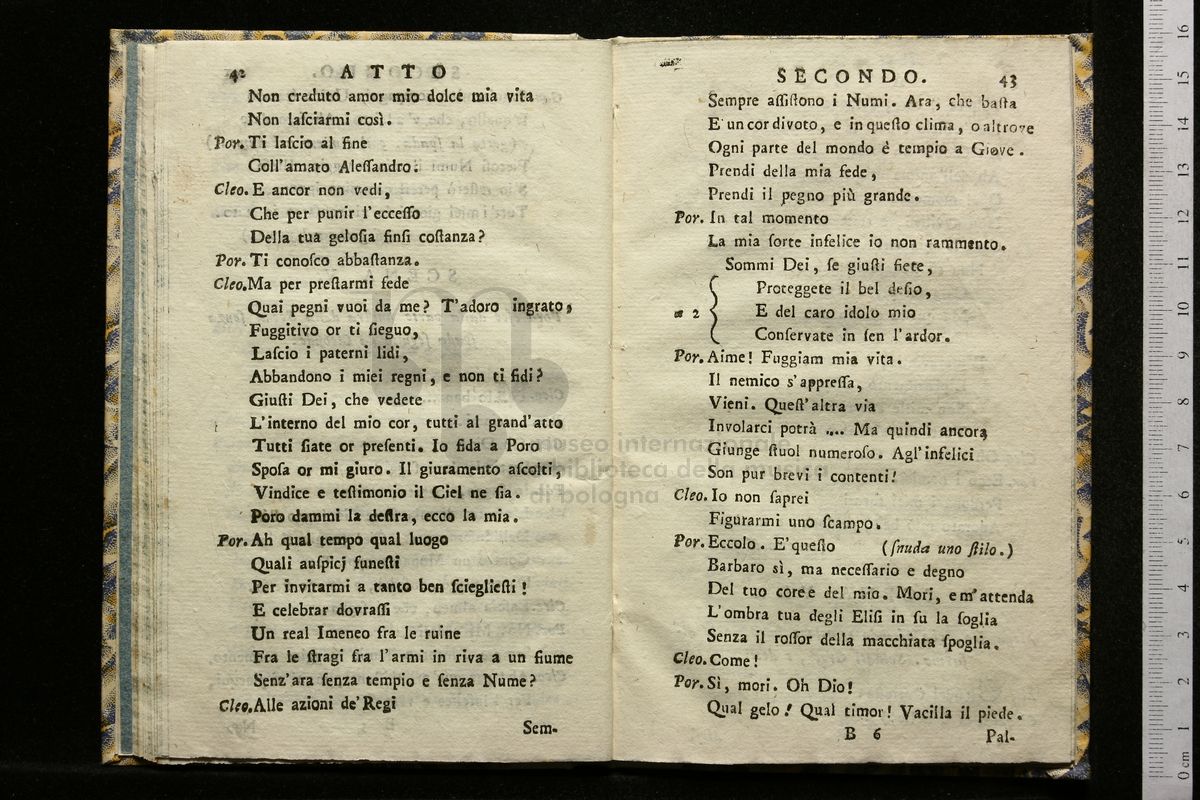 42 ATTO
Non creduto amor mio dolce mia vita
Non laſciarmi così.
Por. Ti laſcio al fine
Coll'amato Aleſſandro.
Cleo. E ancor non vedi,
Che per punir l'ecceſſo
Della tua geloſia finſi coſtanza?
Por. Ti conoſco abbaſtanza.
Cleo. Ma per preſtarmi fede
Quai pegni vuoi da me? T'adoro ingrato,
Fuggitivo or ti ſieguo,
Laſcio i paterni lidi,
Abbandono i miei regni, e non ti fidi?
Giuſti Dei, che vedete
L'interno del mio cor, tutti al grand'atto
Tutti ſiate or preſenti. Io fida a Poro
Spoſa or mi giuro. Il giuramento aſcolti,
Vindice e teſtimonio il Ciel ne ſia.
Poro dammi la deſtra, ecco la mia.
Por. Ah qual tempo qual luogo
Quali auſpicj funeſti
Per invitarmi a tanto ben ſciegliesti!
E celebrar dovraſſi
Un real Imeneo fra le ruine
Fra le ſtragi fra l'armi in riva a un fiume
Senz'ara ſenza tempio e ſenza Nume?
Cleo. Alle azioni de'Regi
Sem-
SECONDO. 43
Sempre aſſiſtono i Numi. Ara, che baſta
E' un cor divoto, e in queſto clima, o altrove
Ogni parte del mondo è tempio a Giove.
Prendi della mia fede,
Prendi il pegno più grande.
Por. In tal momento
La mia ſorte infelice io non rammento.
Sommi Dei, ſe giuſti ſiete,
Proteggete il bel deſio,
a 2 E del caro idolo mio
Conſervate in ſen l'ardor.
Por. Aime! Fuggiam mia vita.
Il nemico s'appreſſa,
Vieni. Queſt'altra via
Involarci potrà .... Ma quindi ancora
Giunge ſtuol numeroſo. Agl'infelici
Son pur brevi i contenti!
Cleo. Io non ſaprei
Figurarmi uno ſcampo.
Por. Eccolo. E' queſto (ſnuda uno ſtilo.)
Barbaro sì, ma neceſſario e degno
Del tuo cor e del mio. Mori, e m'attenda
L'ombra tua degli Eliſi in ſu la ſoglia
Senza il roſſor della macchiata ſpoglia.
Cleo. Come!
Por. Sì, mori. Oh Dio!
Qual gelo! Qual timor! Vacilla il piede.
B 6 Pal-
museo internazionale
biblioteca della musica
di bologna
0 cm 1 2 3 4 5 6 7 8 9 10 11 12 13 14 15 16